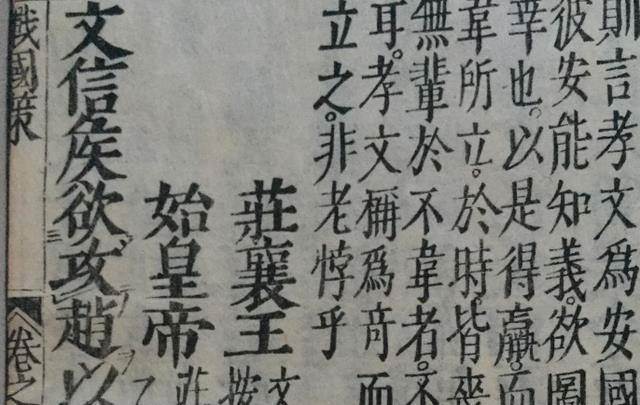 則言孝文爲安國
彼安能知義。欲圖
幸也。以是得贏。而
韋所立。於時。皆
無輩於不韋者。不
耳。孝文稱爲竒而
立之。非老悖乎
莊襄王
文
按
始皇帝
莊
文信矦欲攻趙以
戰國策
卷之